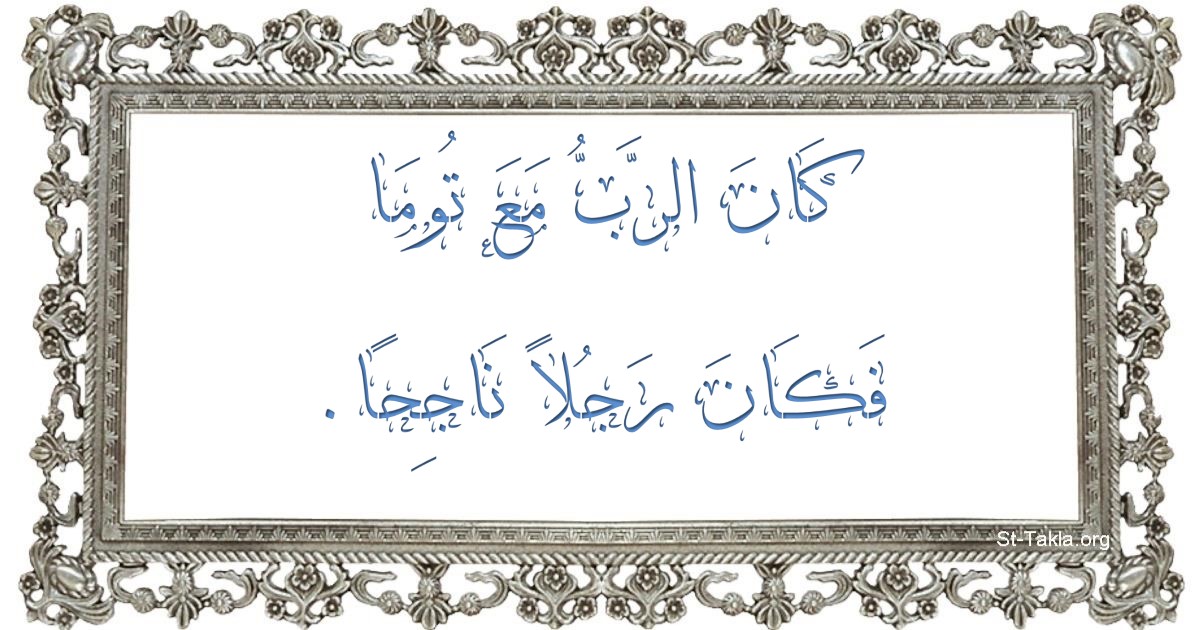 كَانَ الرَّبُّ مَعَ تُومَا
فَكَانَ رَجُلاً نَاجِحًا .
St-Takla.org